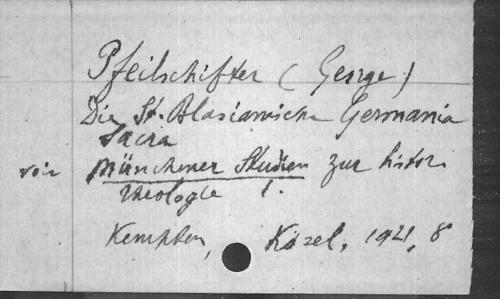 Pfeilschifter (George)
Die St. Blasianische Germania
Sacra
voir Münchener Studien zur histor.
Theologie 1.
Kempten, Kösel, 1921, 8°